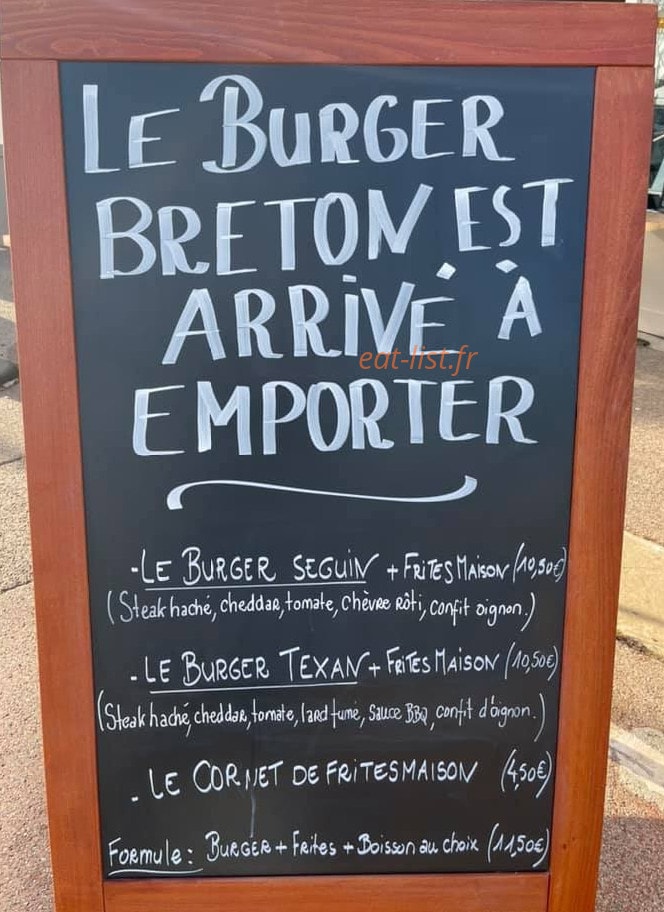 LE BURGER
BRETON EST
ARRIVÉ À
EMPORTER
eat-list.fr
- LE BURGER SEGUIN + FRITES MAISON (10,50€)
(Steak haché, cheddar, tomate, chèvre rôti, confit oignon.)
- LE BURGER TEXAN + FRITES MAISON (10,50€)
(Steak haché, cheddar, tomate, lard fumé, sauce BBQ, confit d'oignon.)
- LE CORNET DE FRITES MAISON (4,50€)
Formule : BURGER + Frites + Boisson au choix (11,50€)